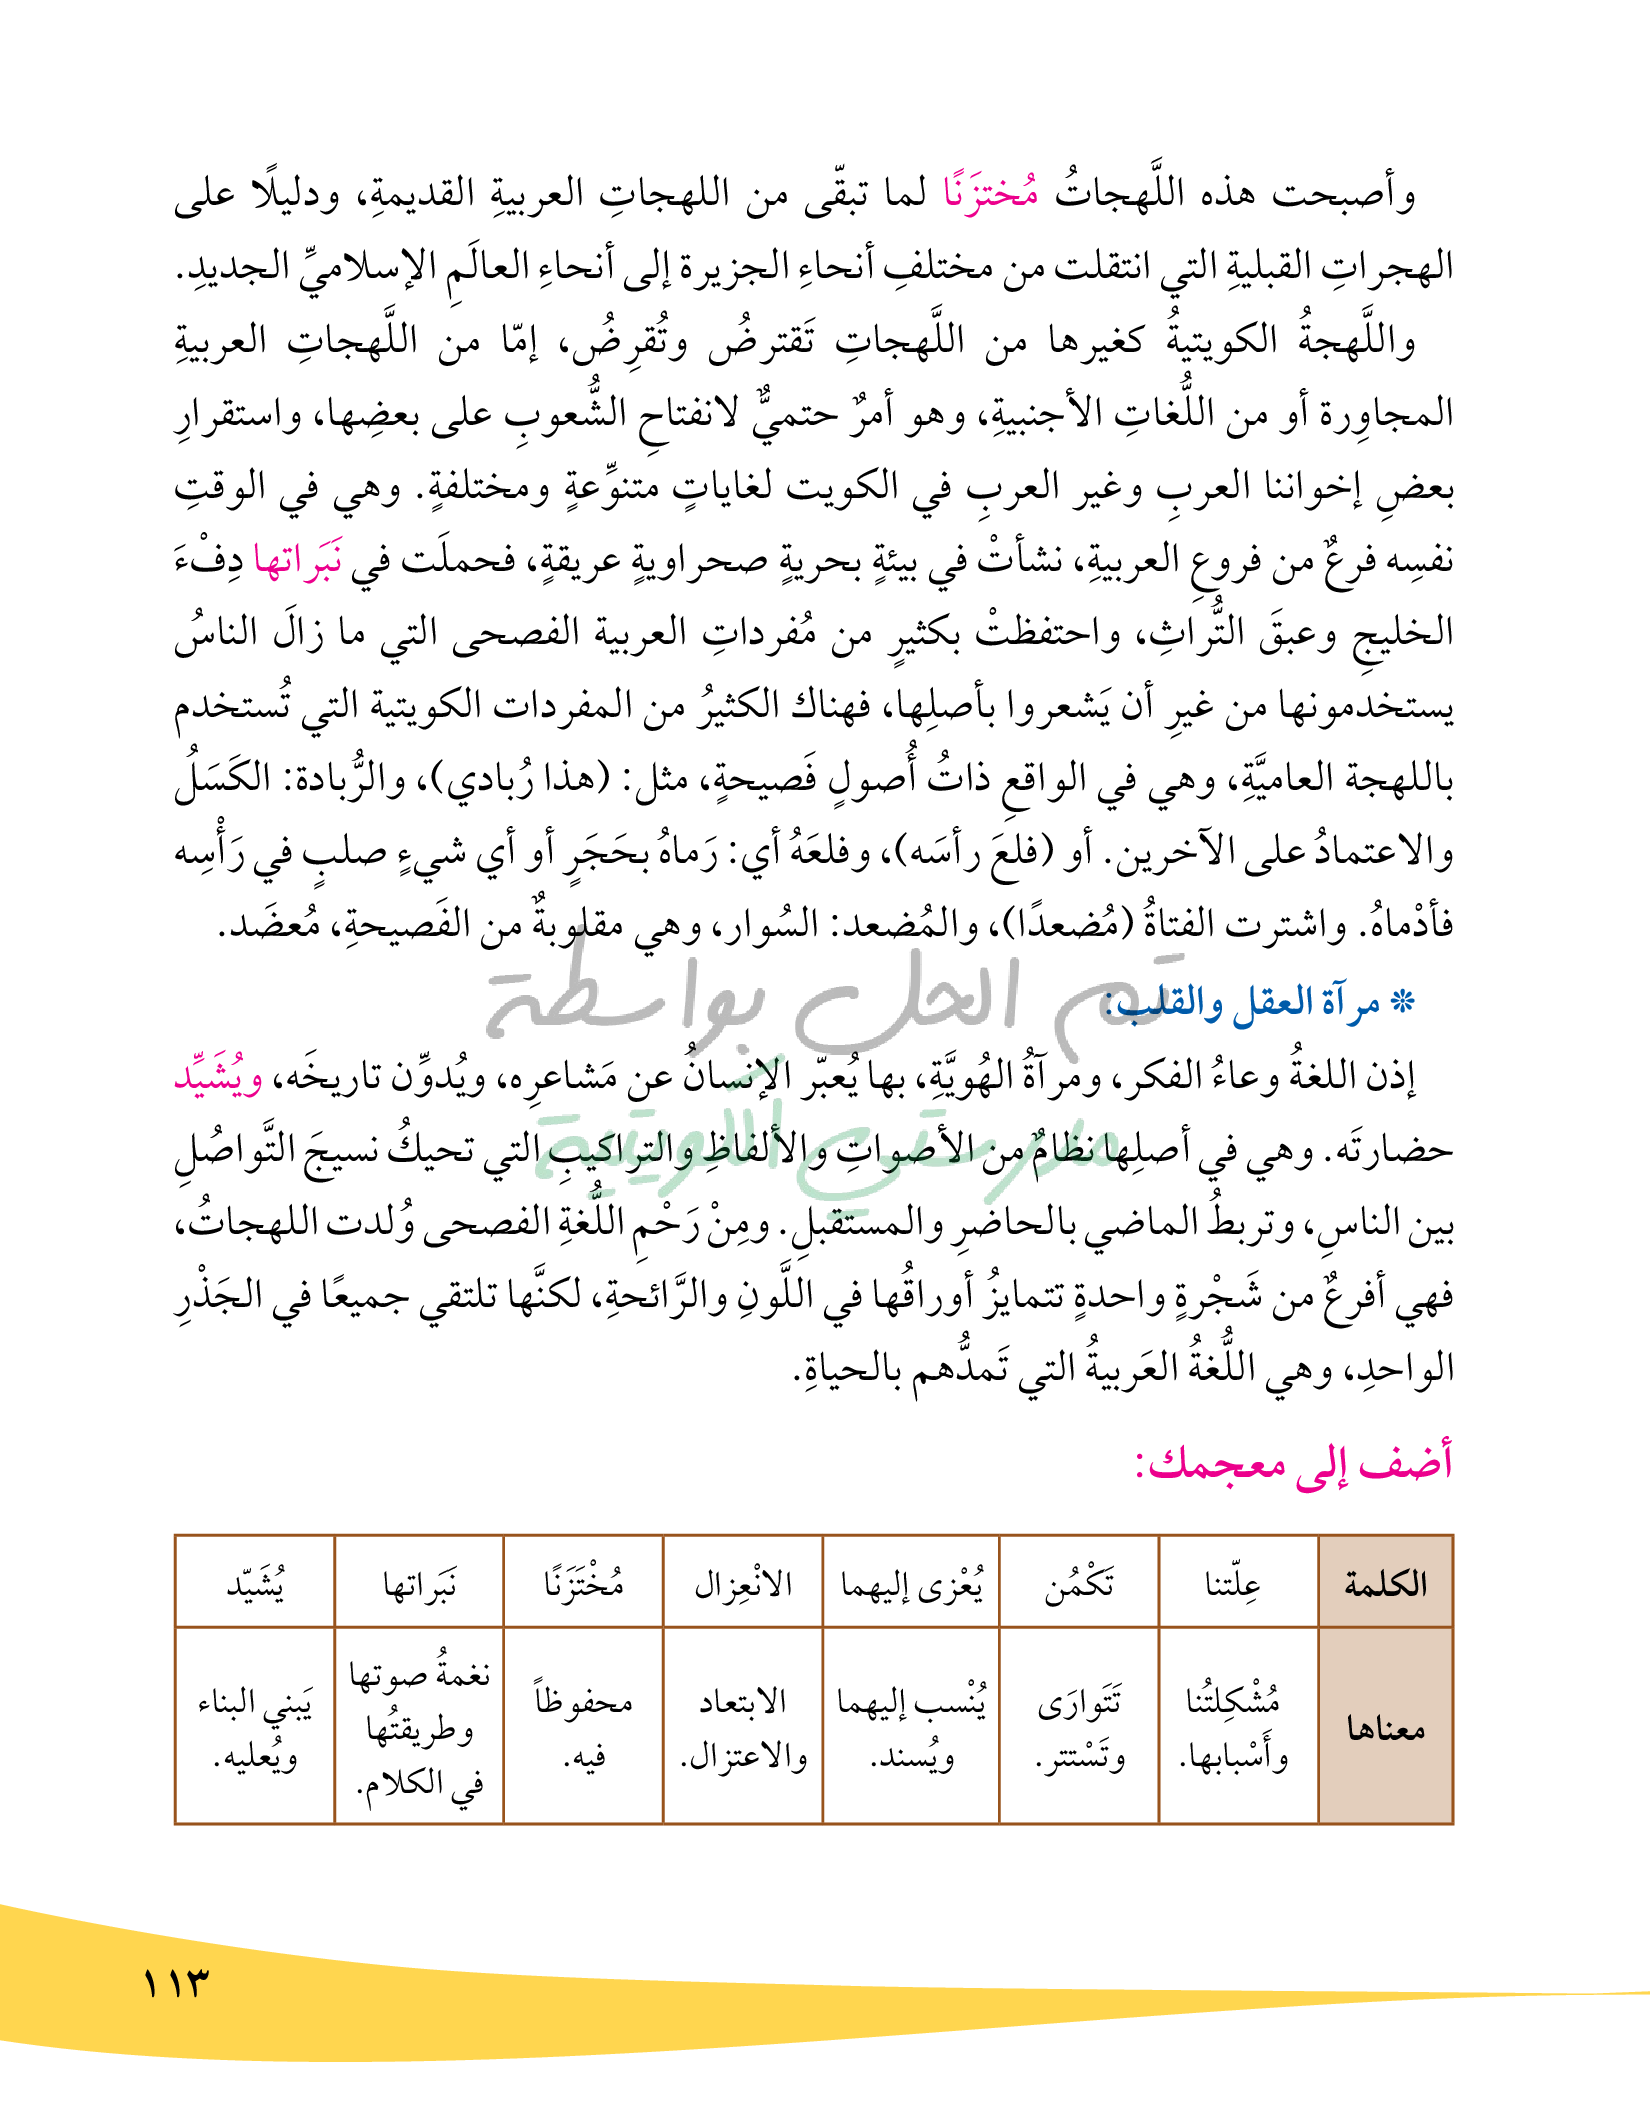 وأصبحت هذه اللَّهجاتُ مُختزَنًا لما تبقّى من اللهجاتِ العربيةِ القديمةِ، ودليلًا على
الهجراتِ القبليةِ التي انتقلت من مختلفِ أنحاءِ الجزيرة إلى أنحاءِ العالَمِ الإسلاميِّ الجديدِ.
واللَّهجةُ الكويتيةُ كغيرها من اللَّهجاتِ تَقترضُ وتُقرِضُ، إمّا من اللَّهجاتِ العربيةِ
المجاوِرة أو من اللُّغاتِ الأجنبيةِ، وهو أمرٌ حتميٌّ لانفتاحِ الشُّعوبِ على بعضِها، واستقرارِ
بعضِ إخواننا العربِ وغير العربِ في الكويت لغاياتٍ متنوِّعةٍ ومختلفةٍ. وهي في الوقتِ
نفسِه فرعٌ من فروعِ العربيةِ، نشأتْ في بيئةٍ بحريةٍ صحراويةٍ عريقةٍ، فحملَت في نَبَراتها دِفْءَ
الخليجِ وعبقَ التُّراثِ، واحتفظتْ بكثيرٍ من مُفرداتِ العربية الفصحى التي ما زالَ الناسُ
يستخدمونها من غيرِ أن يَشعروا بأصلِها، فهناك الكثيرُ من المفردات الكويتية التي تُستخدم
باللهجة العاميَّةِ، وهي في الواقعِ ذاتُ أُصولٍ فَصيحةٍ، مثل: (هذا رُبادي)، والرُّبادة: الكَسَلُ
والاعتمادُ على الآخرين. أو (فلعَ رأسَه)، وفلعَهُ أي: رَماهُ بحَجَرٍ أو أي شيءٍ صلبٍ في رَأْسِه
فأدْماهُ. واشترت الفتاةُ (مُضعدًا)، والمُضعد: السُوار، وهي مقلوبةٌ من الفَصيحةِ، مُعضَد.
تم الحل بواسطة
❊ مرآة العقل والقلب:
إذن اللغةُ وعاءُ الفكر، ومرآةُ الهُويَّةِ، بها يُعبّر الإنسانُ عن مَشاعرِه، ويُدوِّن تاريخَه، ويُشَيِّد
مدرستي الكويتية
حضارتَه. وهي في أصلِها نظامٌ من الأصواتِ والألفاظِ والتراكيبِ التي تحيكُ نسيجَ التَّواصُلِ
بين الناسِ، وتربطُ الماضي بالحاضرِ والمستقبلِ. ومِنْ رَحْمِ اللُّغةِ الفصحى وُلدت اللهجاتُ،
فهي أفرعٌ من شَجْرةٍ واحدةٍ تتمايزُ أوراقُها في اللَّونِ والرَّائحةِ، لكنَّها تلتقي جميعًا في الجَذْرِ
الواحدِ، وهي اللُّغةُ العَربيةُ التي تَمدُّهم بالحياةِ.
أضف إلى معجمك:
الكلمة عِلّتنا تَكْمُن يُعْزى إليهما الانْعِزال مُخْتَزَنًا نَبَراتها يُشَيّد
معناها مُشْكِلتُنا وأَسْبابها. تَتَوارَى وتَسْتتر. يُنْسب إليهما ويُسند. الابتعاد والاعتزال. محفوظاً فيه. نغمةُ صوتها وطريقتُها في الكلام. يَبني البناء ويُعليه.
١١٣